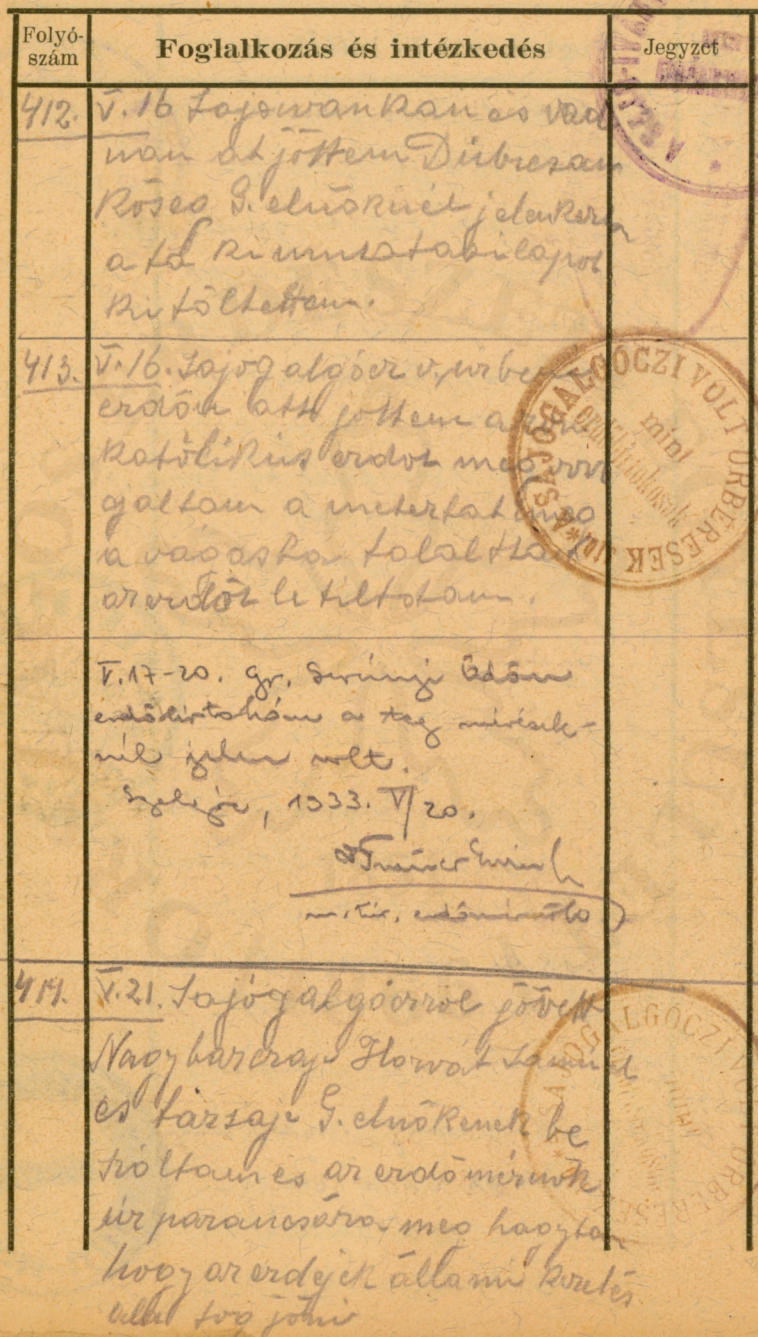 Folyó-
szám
Foglalkozás és intézkedés
Jegyzet
412. V. 16 Sajoivankan és Vad
nan át jöttem Dubicsan
Köses G. elnöknél jelenkez
a fa kimutatasilapot
kitöltettem.
413. V. 16. Sajogalgócz v, urber
erdön att jöttem a
Katólikus erdot meg vizs
galtam a
a vagaska talaltta
az erdőt letiltotam.
A SAJÓGALGÓCZI VOLT ÚRBÉRESEK
mint
V. 17-20. gr. Serényi Ödön
a tag mérések-
nél jelen volt.
1933. V/20.
m. kir. erdőmérnök
414. V. 21. Sajógalgóczrol jövett
Nagybarczaji Horvát Samuel
és társaji G. elnökenek be
szóltam es az erdőmérnök
úr parancsára meg hagytam
hogy az erdejek állami kezelés
alá fog jöni
SAJÓGALGÓCZI VOLT ÚRBÉRESEK